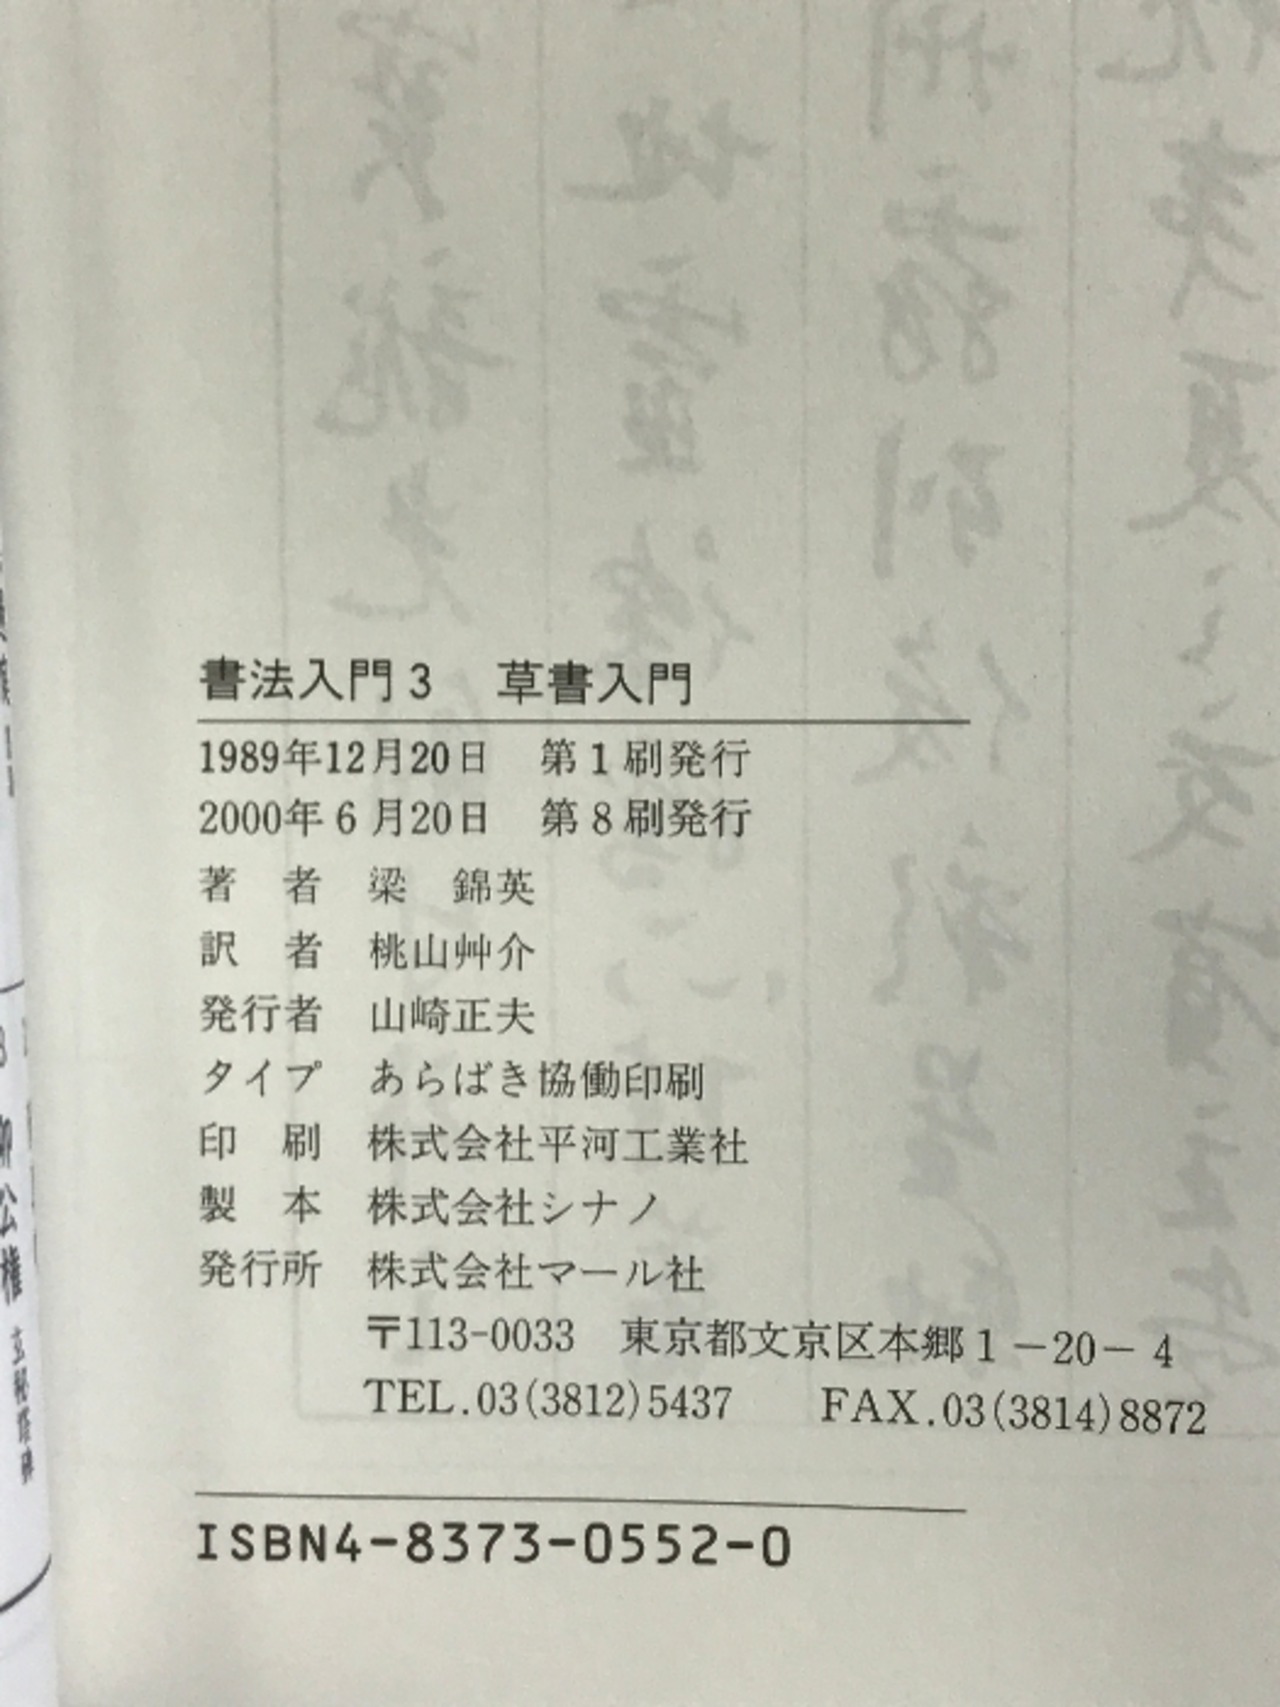 書法入門3　草書入門
1989年12月20日　第1刷発行
2000年6月20日　第8刷発行
著　者　梁　錦英
訳　者　桃山艸介
発行者　山崎正夫
タイプ　あらばき協働印刷
印　刷　株式会社平河工業社
製　本　株式会社シナノ
発行所　株式会社マール社
〒113-0033　東京都文京区本郷1－20－4
TEL.03(3812)5437　FAX.03(3814)8872
ISBN4-8373-0552-0
公権
玄秘塔碑